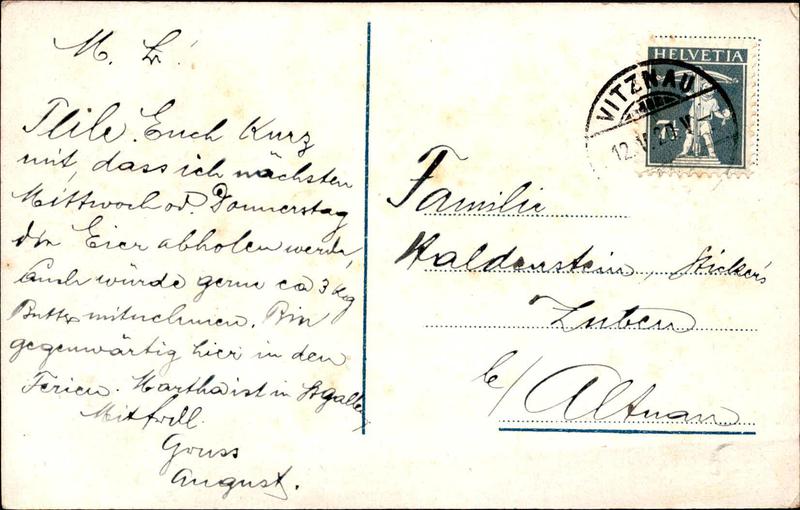 M. L!
Teile Euch Kurz
mit, dass ich nächsten
Mittwoch od. Donnerstag
die Eier abholen werde,
Auch würde gerne ca 3 Kg
Butter mitnehmen. Bin
gegenwärtig hier in den
Ferien. Martha ist in St gallen
Mit frdl.
Gruss
August.
HELVETIA
VITZNAU
12. V. 20. V
7
Familie
Haldenstein, Stickers
Zuben
b/ Altnau